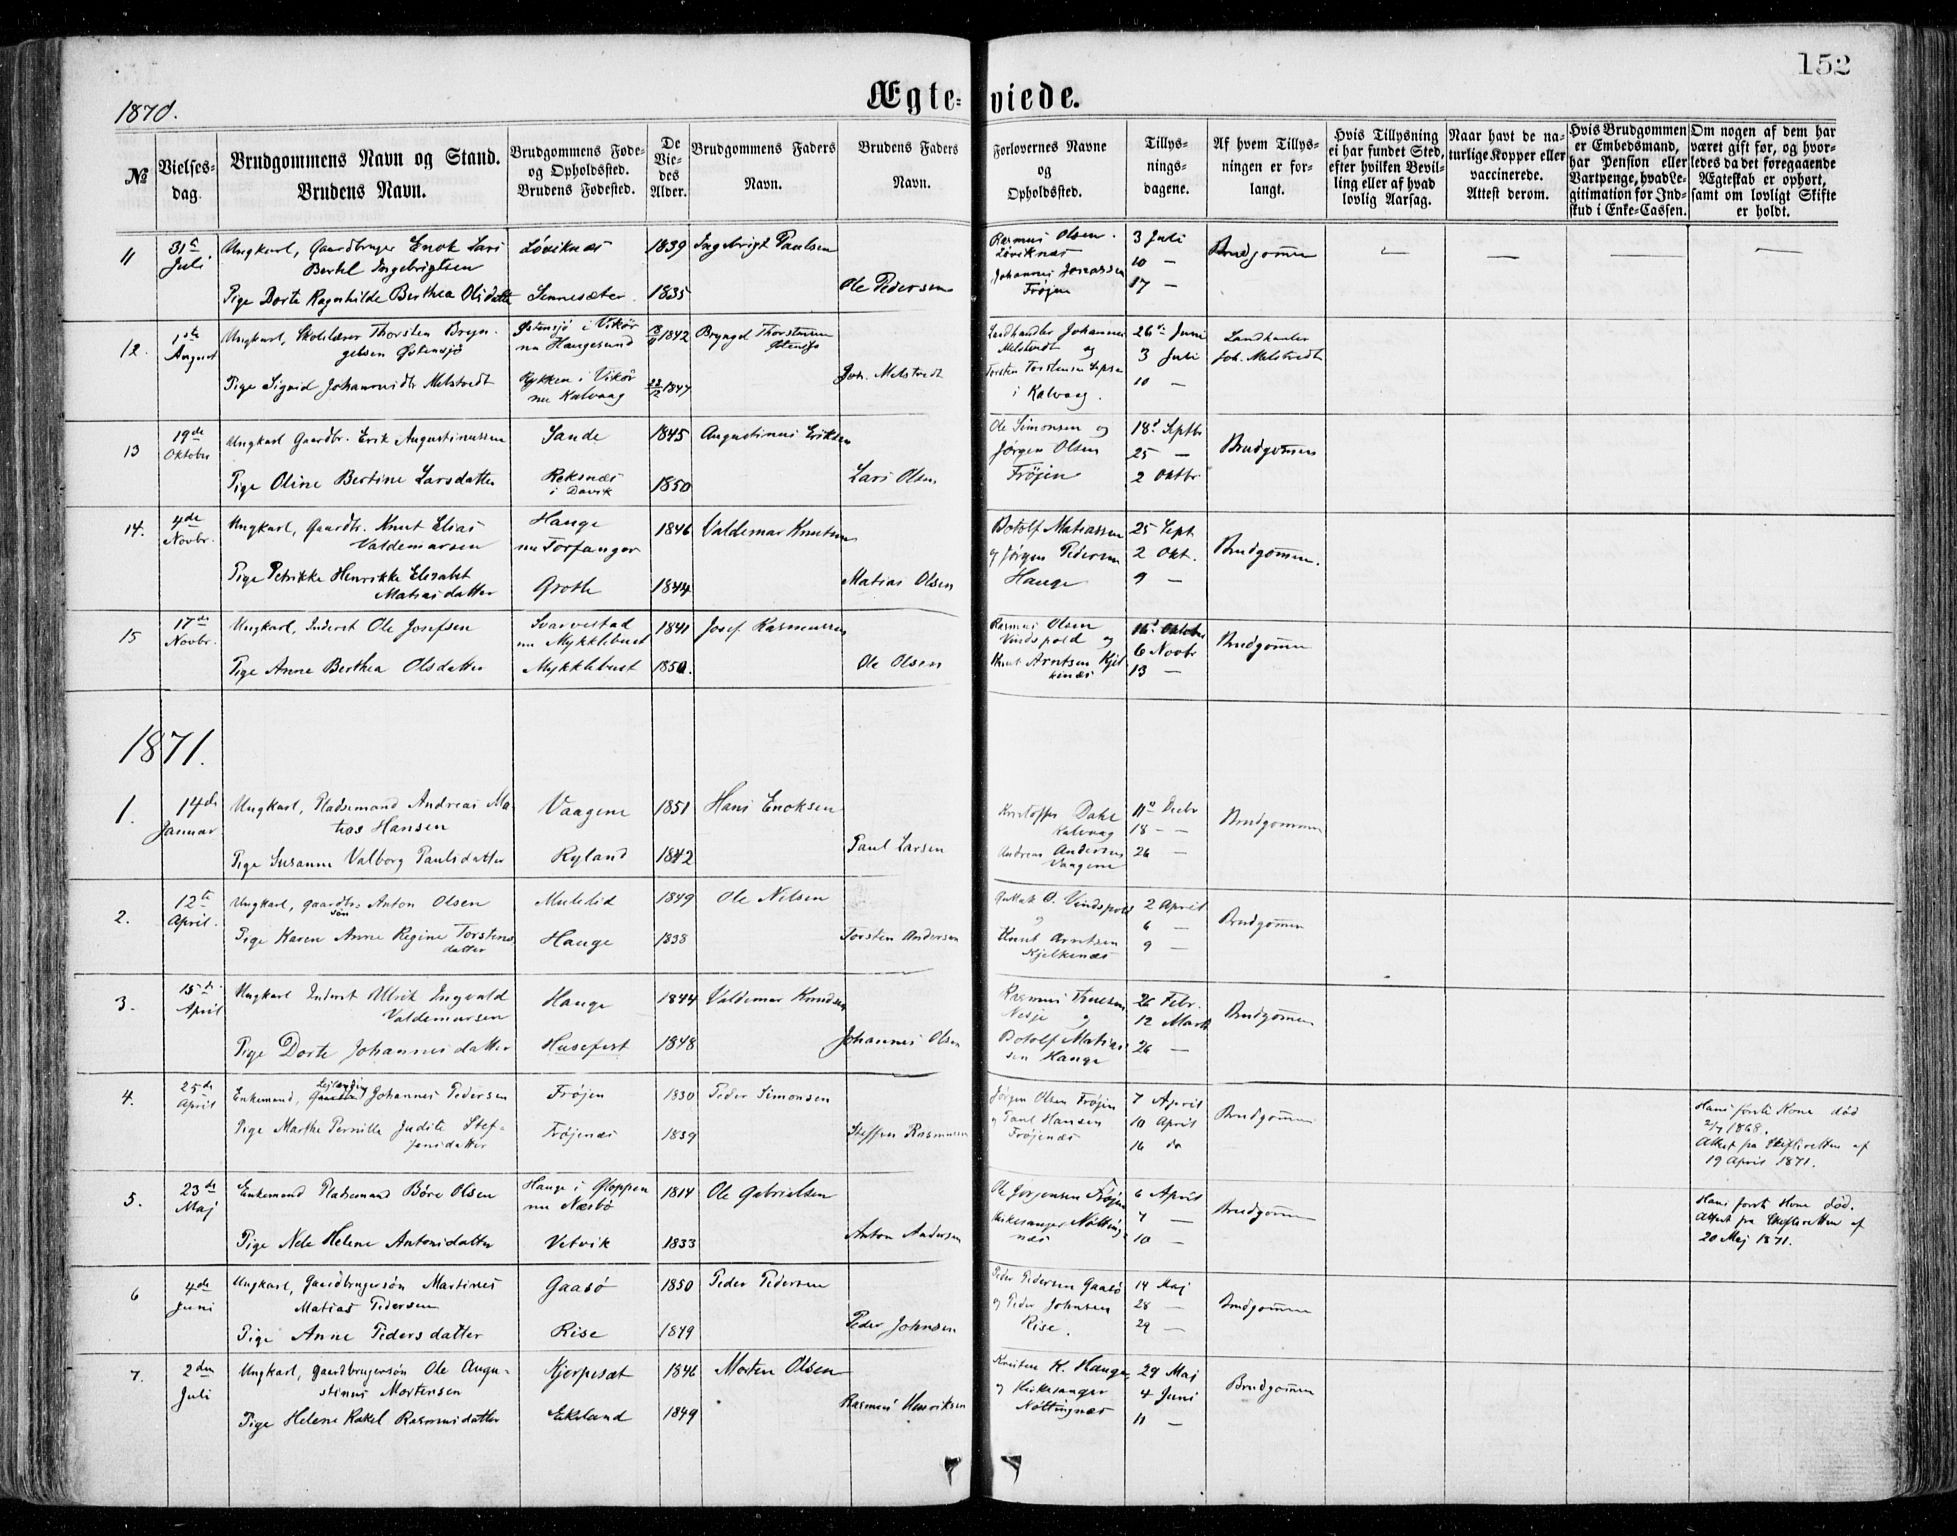 152
1870.
Ægteviede.
№
Vielsesdag.
Brudgommens Navn og Stand.
Brudens Navn.
Brudgommens Føde- og Opholdssted.
Brudens Fødested.
De Viedes Alder.
Brudgommens Faders Navn.
Brudens Faders Navn.
Forlovernes Navne og Opholdssted.
Tillysningsdagene.
Af hvem Tillysningen er forlangt.
Hvis Tillysning ei har fundet Sted, efter hvilken Bevilling eller af hvad lovlig Aarsag.
Naar havt de naturlige Kopper eller vaccinerede. Attest derom.
Hvis Brudgommen er Embedsmand, har Pension eller Vartpenge, hvad Legitimation for Indskud i Enke-Cassen.
Om nogen af dem har været gift før, og hvorledes da det foregaaende Ægteskab er ophørt, samt om lovligt Skifte er holdt.
11 31te Juli Ungkarl, Gaardbruger Enok Lars Løviknæs 1839 Ingebrigt Paulsen Rasmus Olsen 3 Juli Brudgommen
Bertel Ingebrigtsen Løviknæs 10 —
Pige Dorte Ragnhilde Berthea Olsdatte Sennesæter 1835 Ole Pedersen Johannes Jonassen Frøjen 17 —
12. 1ste August Ungkarl, Skolelærer Thorsten Bryngelsen Østensjö Østensjö i Vikör nu Haugesund 1842 Bryngel Thorstensen Østensjö Landhandler Johannes Melstvedt og 26de Juni Landhanler Joh. Melstvedt
3 Juli
Pige Sigrid Johannesdtr Melstvedt Rykken i Vikör nu Kalvaag 22/2 1847 Joh. Melstvedt Torsten Torstensen i Kalvaag. 10 —
13 19de Oktober Ungkarl Gaardbr. Erik Augustinussen Sande 1845 Augustinus Eriksen Ole Simonsen og 18d Septbr Brudgommen
Jørgen Olsen 25 —
Pige Oline Bertine Larsdatter Reksnæs i Davik 1850 Lars Olsen Frøjen 2 Oktbr
14. 4de Novbr. Ungkarl, Gaardbr. Knut Elias Valdemarsen Hauge nu Torfanger 1846 Valdemar Knutsen Botolf Matiassen 25 Sept Brudgommen.
og Jørgen Pedersen 2 Okt.
Pige Petrikke Henrikke Elisabet Matiasdatter Grotle 1844 Matias Olsen Hauge 9 —
15 17de Novbr. Ungkarl, Inderst Ole Josefsen Svarvestad nu Mykklebust 1841 Josef Rasmussen Rasmus Olsen Vindspold og 16d Oktober Brudgommen
6 Novbr
Pige Anne Berthea Olsdatter Mykklebust 1850. Ole Olsen Knut Arntsen Kjelkenæs 13 —
1871.
1. 14de Januar Ungkarl, Pladsemand Andreas Matias Hansen Vaagene 1851 Hans Enoksen Kristoffer Dahl Kalvaag 11te Decbr Brudgommen
18 —
Pige Susanne Valborg Paulsdatter Ryland 1842 Paul Larsen Andreas Andersen Vaagene 26 —
2. 12te April. Ungkarl, gaardbr.søn Anton Olsen Mulelid 1849 Ole Nilsen O. Vindspold 2 April Brudgommen
og 6 —
Pige Karen Anne Regine Torstensdatter Hauge 1838 Torsten Andersen Knut Arntsen Kjelkenæs 9 —
3. 15de April Ungkarl Inderst Ulrik Ingvald Valdemarsen Hauge 1844 Valdemar Knudsen Rasmus 26 Febr. Brudgommen
Nesje og 12 Marts
Pige Dorte Johannesdatter Husefest 1848 Johannes Olsen Botolf Matiassen Hauge 26 —
4. 25de April Enkemand, Gaardbr Johannes Pedersen Frøjen 1830 Peder Simonsen Jørgen Olsen Frøjen 7 April Brudgommen Hans første Kone død
2/7 1868.
Pige Marthe Pernille Judith Steffensdatter Frøjenæs 1839 Steffen Rasmussen og Paul Hansen Frøjenæs 10 April Attest fra Skifteretten af
16 do 19 April 1871.
5. 23de Maj Enkemand Pladsemand Børe Olsen Hauge i Gloppen nu Næsbö 1814 Ole Gabrielsen Ole Jørgensen Frøjen 6 April Brudgommen Hans første Kone død.
7 — Attest fra Skifteretten af
Pige Nele Helene Antonsdatter Vetvik 1833 Anton Andersen Kirkesanger Nöttingnæs 10 — 20 Maj 1871.
6 4de Juni Ungkarl, Gaardbrugersøn Martines Matias Pedersen Gaasö 1850 Peder Pedersen Peder Pedersen Gaasö 14 Maj Brudgommen
og Peder Johnsen 28 —
Pige Anne Pedersdatter Rise 1849 Peder Johnsen Rise. 29 —
7. 2den Juli Ungkarl, gaardbrugersøn Ole Augustinus Mortensen Kjerpesæt 1846 Morten Olsen K. Hauge 29 Maj Brudgommen
og Kirkesanger 4 Juni
Pige Helene Rakel Rasmusdatter Ekeland 1849 Rasmus Henriksen Nöttingnæs 11 —